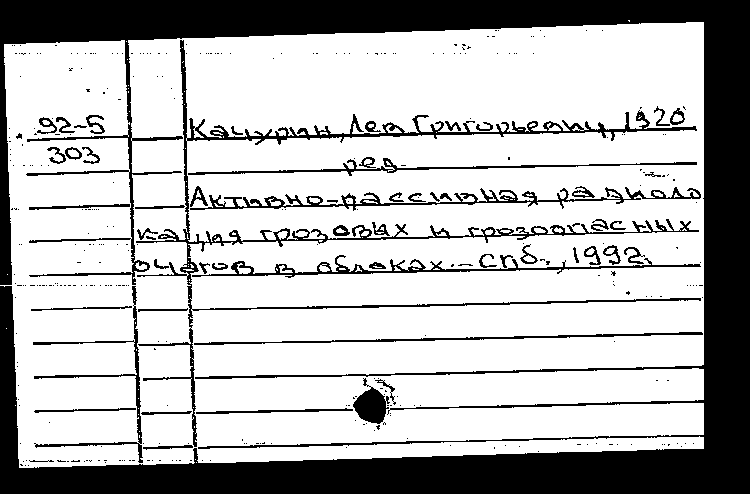 92-5 Качурин, Лев Григорьевич, 1920
303 ред.
Активно-пассивная радиоло
кация грозовых и грозоопасных
очагов в облаках.- СПб., 1992.